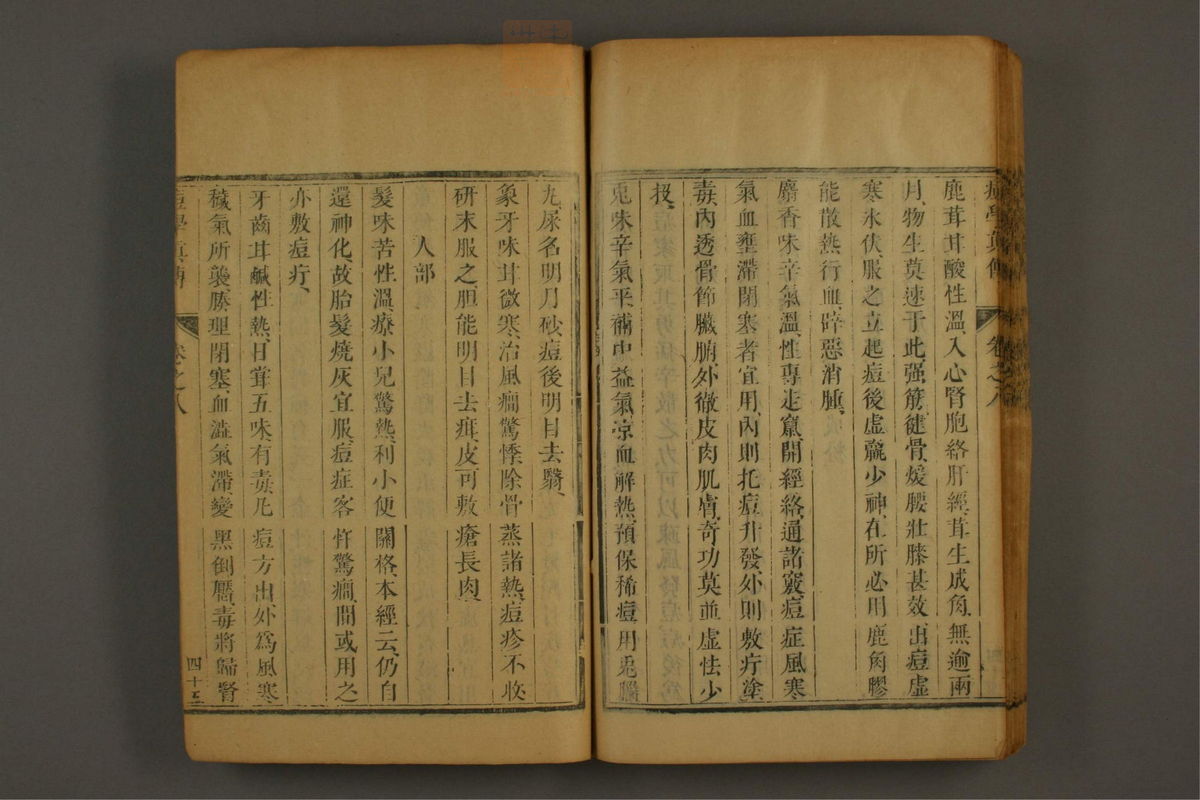 痘學真傳　卷之八
鹿茸甘酸性溫、入心腎胞絡肝經、茸生成角、無逾兩
月、物生莫速于此、强筋健骨、煖腰壯膝甚效、出痘虛
寒氷伏、服之立起、痘後虛羸少神、在所必用、鹿角膠
能散熱行血、辟惡消腫、
麝香味辛氣溫、性專走竄、開經絡、通諸竅、痘症風寒
氣血壅滯閉塞者宜用、內則托痘升發、外則敷疔塗
毒、內透骨節臟腑、外徹皮肉肌膚、奇功莫並、虛怯少
投、
兎味辛氣平、補中益氣、凉血解熱、預保稀痘用兎腦
九、尿名明月砂、痘後明目去翳、
象牙味甘微寒、治風癎驚悸、除骨蒸諸熱、痘疹不收
研末服之、胆能明目去疳、皮可敷瘡長肉、
人部
髮味苦性溫、療小兒驚熱、利小便關格、本經云、仍自
還神化、故胎髮燒灰宜服、痘症客忤驚癎、間或用之
亦敷痘疔、
牙齒甘鹹性熱、日茸五味、有毒、凡痘方出、外爲風寒
穢氣所襲、腠理閉塞、血澁氣滯、變黑倒靨、毒將歸腎
痘學真傳　卷之八　四十三